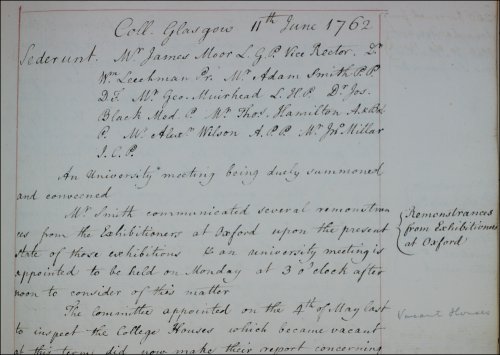 Coll. Glasgow 11th June 1762
Sederunt. Mr James Moor L.G.P Vice Rector. Dr
Wm Leechman Pr. Mr Adam Smith P.P
D.F. Mr Geo. Muirhead L.H.P. Dr Jos.
Black Med. P Mr Thos. Hamilton A & B.
P. Mr Alexr Wilson A.P.P. Mr Jno Millar
J.C.P.
An University meeting being duely summoned
and conveened
Mr Smith communicated several remonstran
ces from the Exhibitioners at Oxford upon the present
state of those exhibitions & an university meeting is
appointed to be held on Monday at 3 o'clock after
noon to consider of this matter
The Committee appointed on the 4th of May last
to inspect the College Houses which became vacant
at this term did now make their report concerning
Remonstrances
from Exhibitioners
at Oxford
Vacant Houses